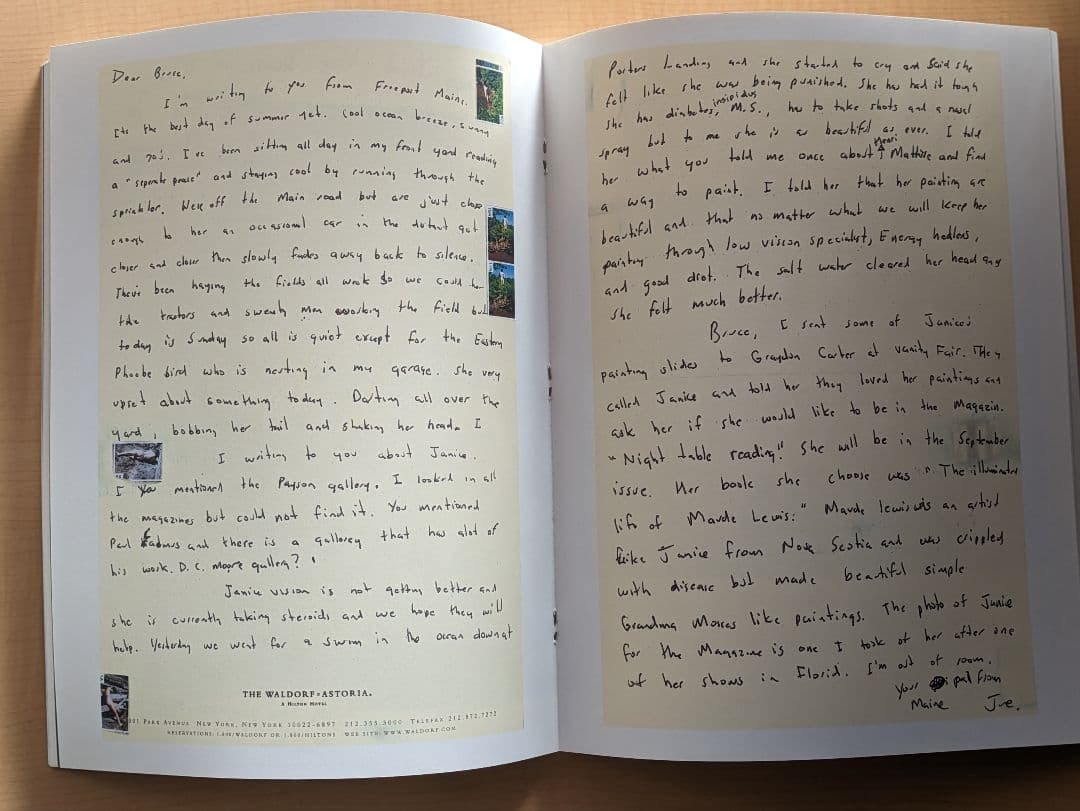 Dear Bruce,
I'm writing to you from Freeport Maine.
Its the best day of summer yet. Cool ocean breeze, sunny
and 70's. I've been sitting all day in my front yard reading
a "seperate peace" and staying cool by running through the
sprinkler. Were off the Main road but are just close
enough to her an occasional car in the distant get
closer and closer then slowly fades away back to silence.
They've been haying the fields all week so we could her
the tractors and sweaty men working the field but
today is Sunday so all is quiet except for the Eastern
Phoebe bird who is nesting in my garage. She very
upset about something today. Darting all over the
yard, bobbing her tail and shaking her head. I
I writing to you about Janice.
I You mentioned the Payson gallery. I looked in all
the magazines but could not find it. You mentioned
Paul Cadmus and there is a gallerey that has alot of
his work. D.C. Moore gallery?
Janice vision is not getting better and
she is currently taking steroids and we hope they will
help. Yesterday we went for a swim in the ocean down at
THE WALDORF=ASTORIA.
A HILTON HOTEL
301 PARK AVENUE NEW YORK, NEW YORK 10022-6897 212.355.3000 TELEFAX 212.872.7272
RESERVATIONS: 1.800/WALDORF OR 1.800/HILTONS WEB SITE: WWW.WALDORF.COM
Porters Landing and she started to cry and said she
felt like she was being punished. She has had it tough
she has diabetes insipidus, M.S., has to take shots and a nasel
spray but to me she is as beautiful as ever. I told
her what you told me once about Henri Mattise and find
a way to paint. I told her that her painting are
beautiful and that no matter what we will keep her
painting through low vision specialist, Energy healers,
and good diet. The salt water cleared her head and
she felt much better.
Bruce, I sent some of Janices
painting slides to Graydon Carter at Vanity Fair. They
called Janice and told her they loved her paintings and
ask her if she would like to be in the Magazin.
"Night table reading." She will be in the September
issue. Her book she choose was "The illuminated
life of Maude Lewis." Maude lewis was an artist
like Janice from Nova Scotia and was crippled
with disease but made beautiful simple
Grandma Moses like paintings. The photo of Janice
for the Magazine is one I took of her after one
of her shows in Florid. I'm out of room.
Your pal from
Maine Joe.